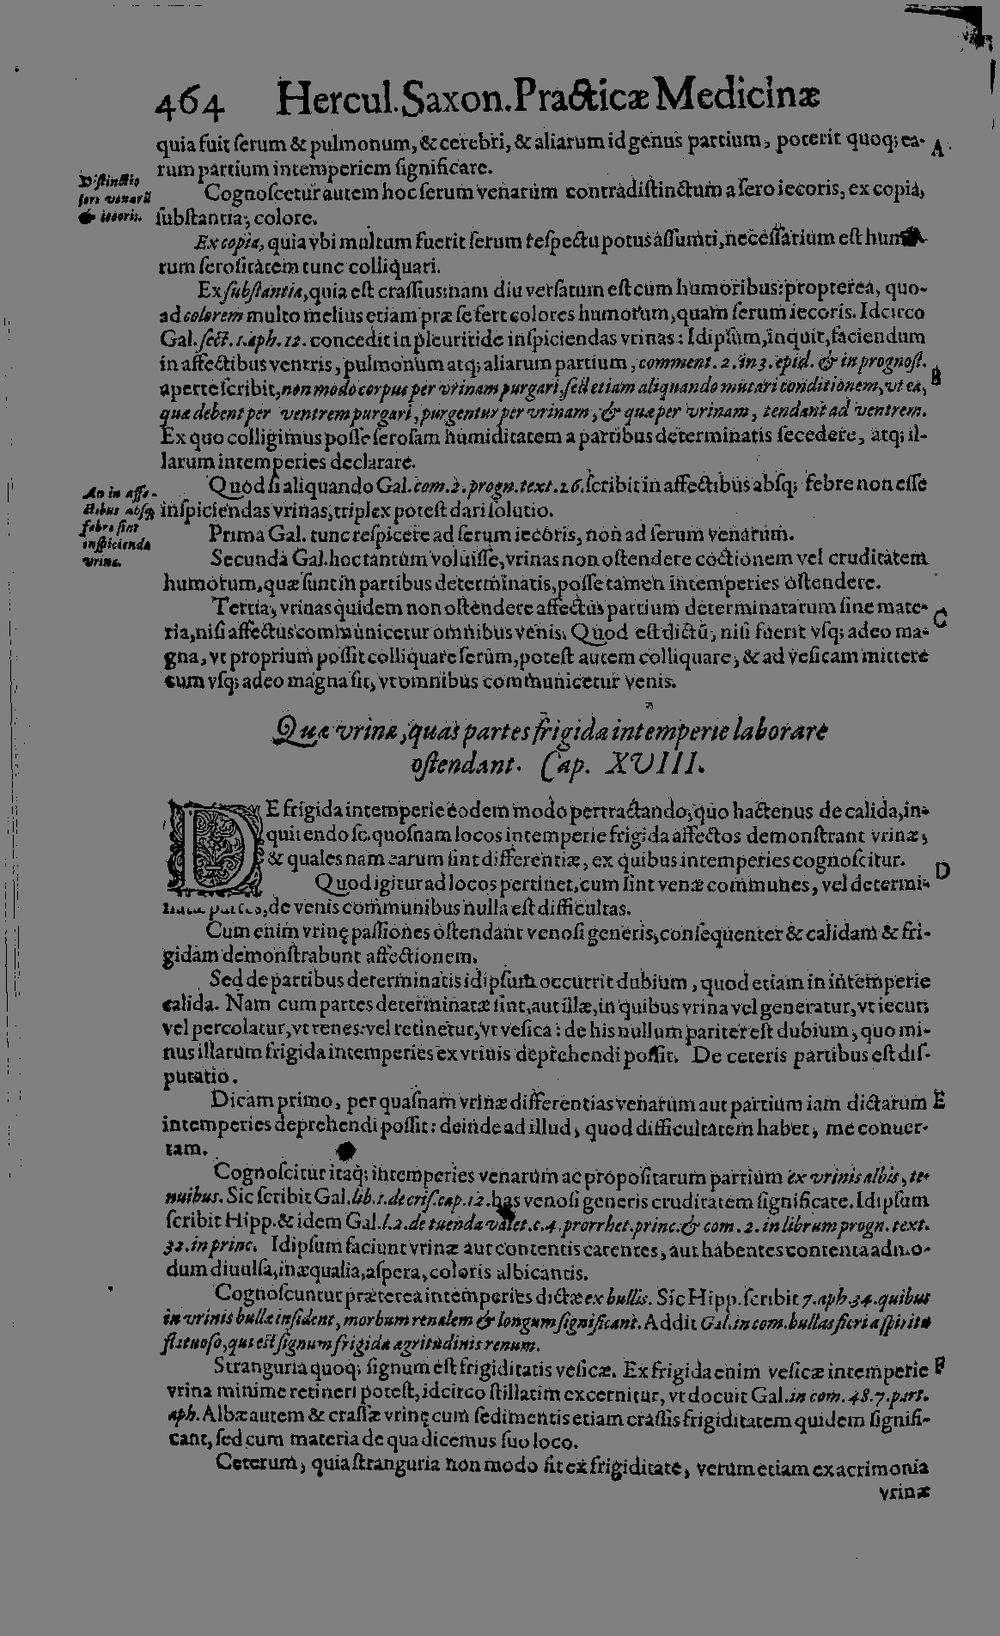 464 Hercul.Saxon.Practicæ Medicinæ
quia fuit ſerum & pulmonum, & cerebri, & aliarum id genus partium, poterit quoq; ea- A
rum partium intemperiem ſignificare.
Diſtinctio
ſeri venarũ
& iecoris.
Cognoſcetur autem hoc ſerum venarum contradiſtinctum a ſero iecoris, ex copia,
ſubſtantia, colore.
Ex copia, quia vbi multum fuerit ſerum reſpectu potus aſſumti, neceſſarium eſt
rum ſeroſitatem tunc colliquari.
Ex ſubſtantia, quia eſt craſſius: nam diu verſatum eſt cum humoribus: propterea, quo-
ad colorem multo melius etiam præ ſe fert colores humorum, quam ſerum iecoris. Idcirco
Gal. ſect. 1. aph. 12. concedit in pleuritide inſpiciendas vrinas: Idipſum, inquit, faciendum
in affectibus ventris, pulmonum atq; aliarum partium, comment. 2. in 3. epid. & in prognoſt.
aperte ſcribit, non modo corpus per vrinam purgari, ſed etiam aliquando mutari conditionem, vt ea, B
quæ debent per ventrem purgari, purgentur per vrinam, & quæ per vrinam, tendant ad ventrem.
Ex quo colligimus poſſe ſeroſam humiditatem a partibus determinatis ſecedere, atq; il-
larum intemperies declarare.
An in affe-
ctibus abſq;
febre ſint
inſpiciendæ
vrinæ.
Quod ſi aliquando Gal. com. 2. progn. text. 26. ſcribit in affectibus abſq; febre non eſſe
inſpiciendas vrinas, triplex poteſt dari ſolutio.
Prima Gal. tunc reſpicere ad ſerum iecoris, non ad ſerum venarum.
Secunda Gal. hoc tantum voluiſſe, vrinas non oſtendere coctionem vel cruditatem
humorum, quæ ſunt in partibus determinatis, poſſe tamen intemperies oſtendere.
Tertia, vrinas quidem non oſtendere affectus partium determinatarum ſine mate-
ria, niſi affectus communicetur omnibus venis. Quod eſt dictũ, niſi fuerit vſq; adeo ma- C
gna, vt proprium poſſit colliquare ſerum, poteſt autem colliquare, & ad veſicam mittere
cum vſq; adeo magna ſit, vt omnibus communicetur venis.
Quæ vrinæ, quas partes frigida intemperie laborare
oſtendant. Cap. XVIII.
DE frigida intemperie eodem modo pertractando, quo hactenus de calida, in-
quirendo ſc. quoſnam locos intemperie frigida affectos demonſtrant vrinæ,
& quales nam earum ſint differentiæ, ex quibus intemperies cognoſcitur.
Quod igitur ad locos pertinet, cum ſint venæ communes, vel determi- D
natæ partes, de venis communibus nulla eſt difficultas.
Cum enim vrinę paſſiones oſtendant venoſi generis, conſequenter & calidam & fri-
gidam demonſtrabunt affectionem.
Sed de partibus determinatis idipſum occurrit dubium, quod etiam in intemperie
calida. Nam cum partes determinatæ ſint, aut illæ, in quibus vrina vel generatur, vt iecur:
vel percolatur, vt renes: vel retinetur, vt veſica: de his nullum pariter eſt dubium, quo mi-
nus illarum frigida intemperies ex vrinis deprehendi poſſit. De ceteris partibus eſt diſ-
putatio.
Dicam primo, per quaſnam vrinæ differentias venarum aut partium iam dictarum E
intemperies deprehendi poſſit: deinde ad illud, quod difficultatem habet, me conuer-
tam.
Cognoſcitur itaq; intemperies venarum ac propoſitarum partium ex vrinis albis, te-
nuibus. Sic ſcribit Gal. lib. 1. de criſ. cap. 12. has venoſi generis cruditatem ſignificare. Idipſum
ſcribit Hipp. & idem Gal. l. 2. de tuenda valet. c. 4. prorrhet. princ. & com. 2. in librum progn. text.
32. in princ. Idipſum faciunt vrinæ aut contentis carentes, aut habentes contenta admo-
dum diuulſa, inæqualia, aſpera, coloris albicantis.
Cognoſcuntur præterea intemperies dictæ ex bullis. Sic Hipp. ſcribit 7. aph. 34. quibus
in vrinis bullæ inſident, morbum renalem & longum ſignificant. Addit Gal. in com. bullas fieri a ſpiritu
flatuoſo, qui eſt ſignum frigidæ ægritudinis renum.
Stranguria quoq; ſignum eſt frigiditatis veſicæ. Ex frigida enim veſicæ intemperie F
vrina minime retineri poteſt, idcirco ſtillatim excernitur, vt docuit Gal. in com. 48. 7. part.
aph. Albæ autem & craſſæ vrinę cum ſedimentis etiam craſſis frigiditatem quidem ſignifi-
cant, ſed cum materia de qua dicemus ſuo loco.
Ceterum, quia ſtranguria non modo fit ex frigiditate, verum etiam ex acrimonia
vrinæ